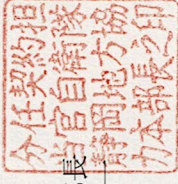 分任契約担
当官自衛隊
静岡地方協
力本部長之印
長